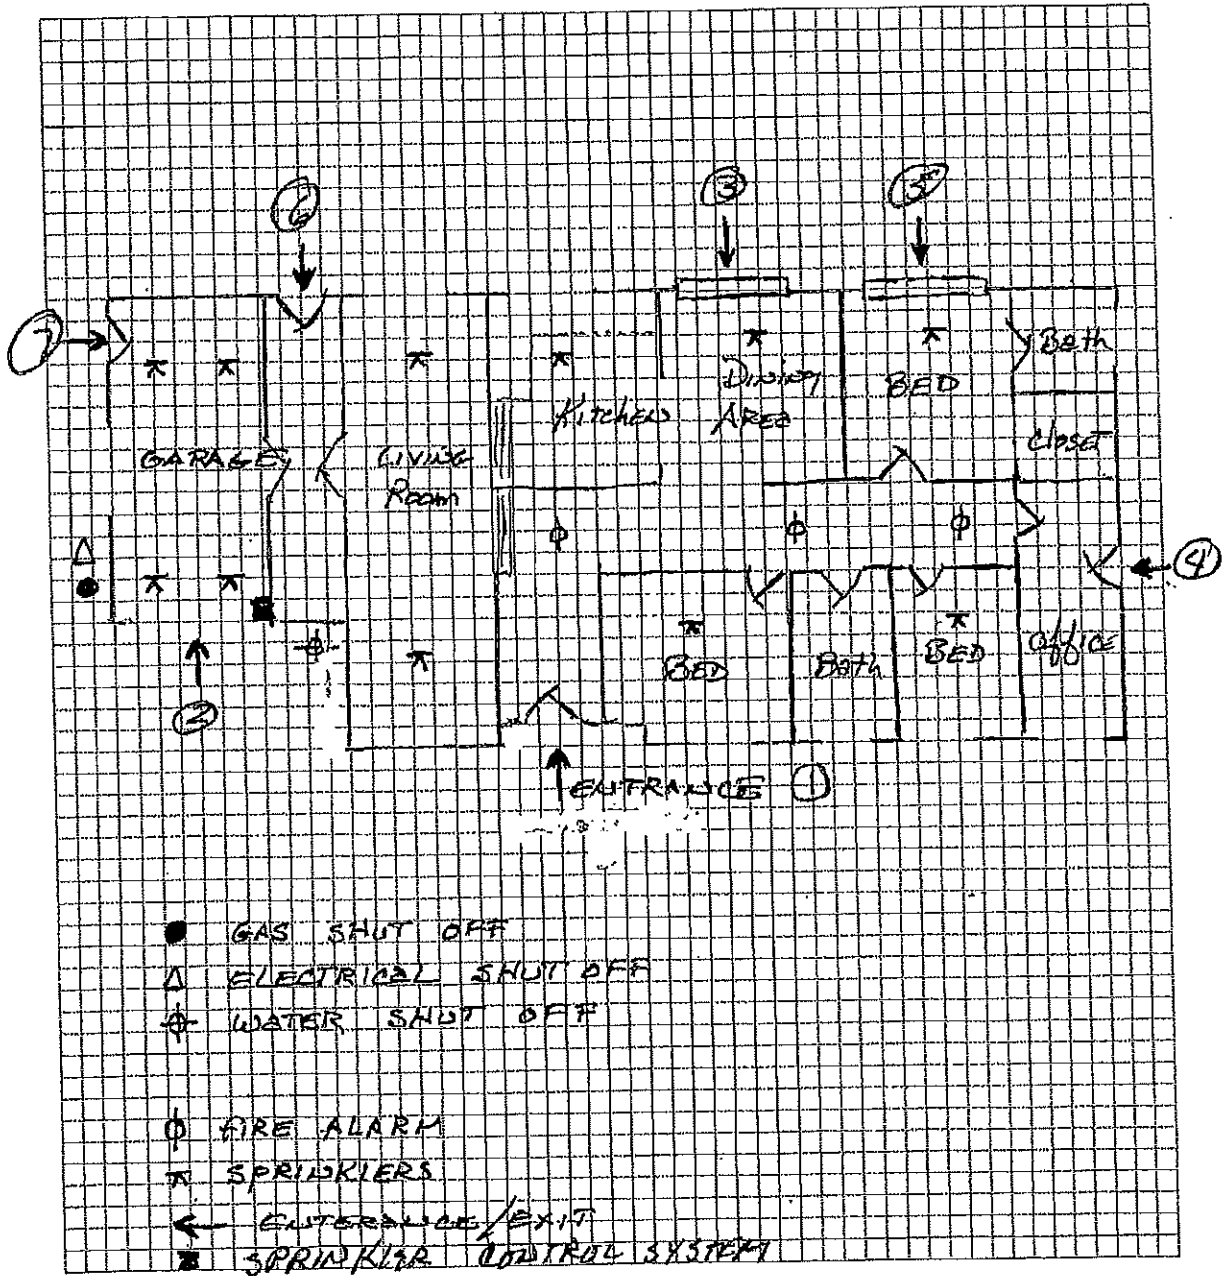 6
3
5
7
Bath
Dining
Area
BED
Kitchen
GARAGE
LIVING
Room
Closet
4
BED
Bath
BED
Office
2
ENTRANCE 1
GAS SHUT OFF
ELECTRICAL SHUT OFF
WATER SHUT OFF
FIRE ALARM
SPRINKLERS
ENTERANCE/EXIT
SPRINKLER CONTROL SYSTEM